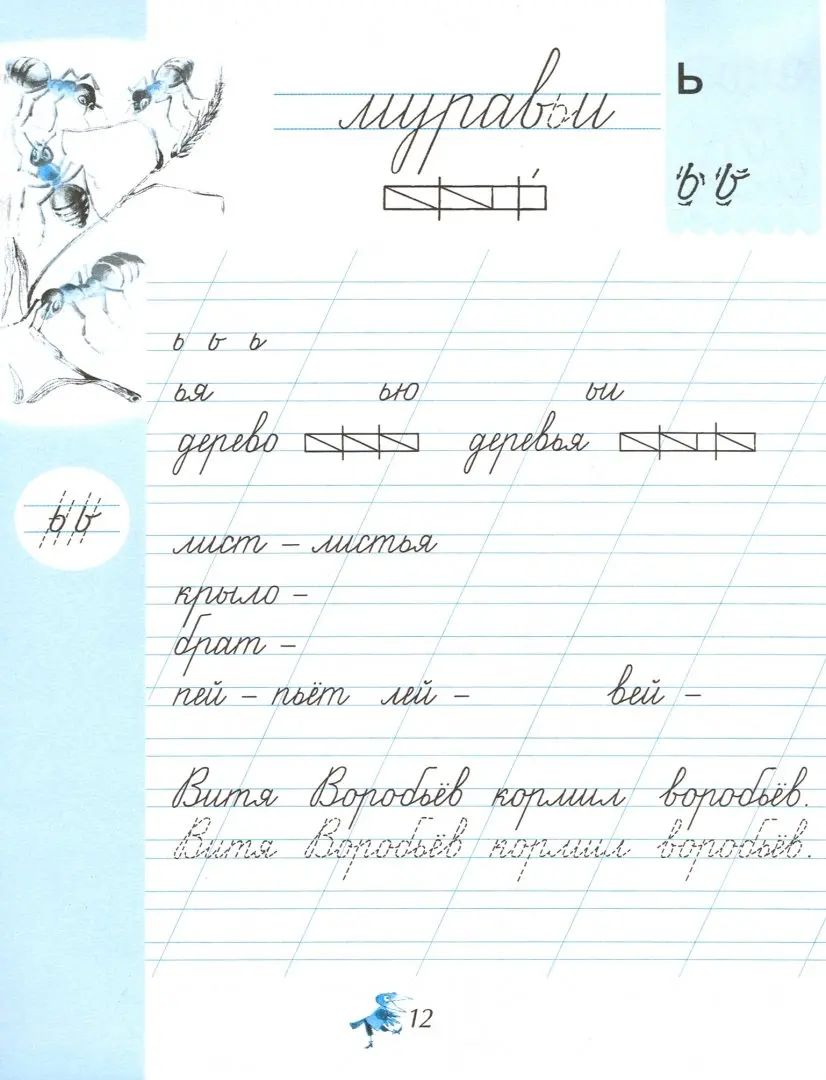 муравьи
ь
ь ь
ь ь ь
ья ью ьи
дерево деревья
ь ь
лист – листья
крыло –
брат –
пей – пьёт лей – вей –
Витя Воробьёв кормил воробьёв.
Витя Воробьёв кормил воробьёв.
12